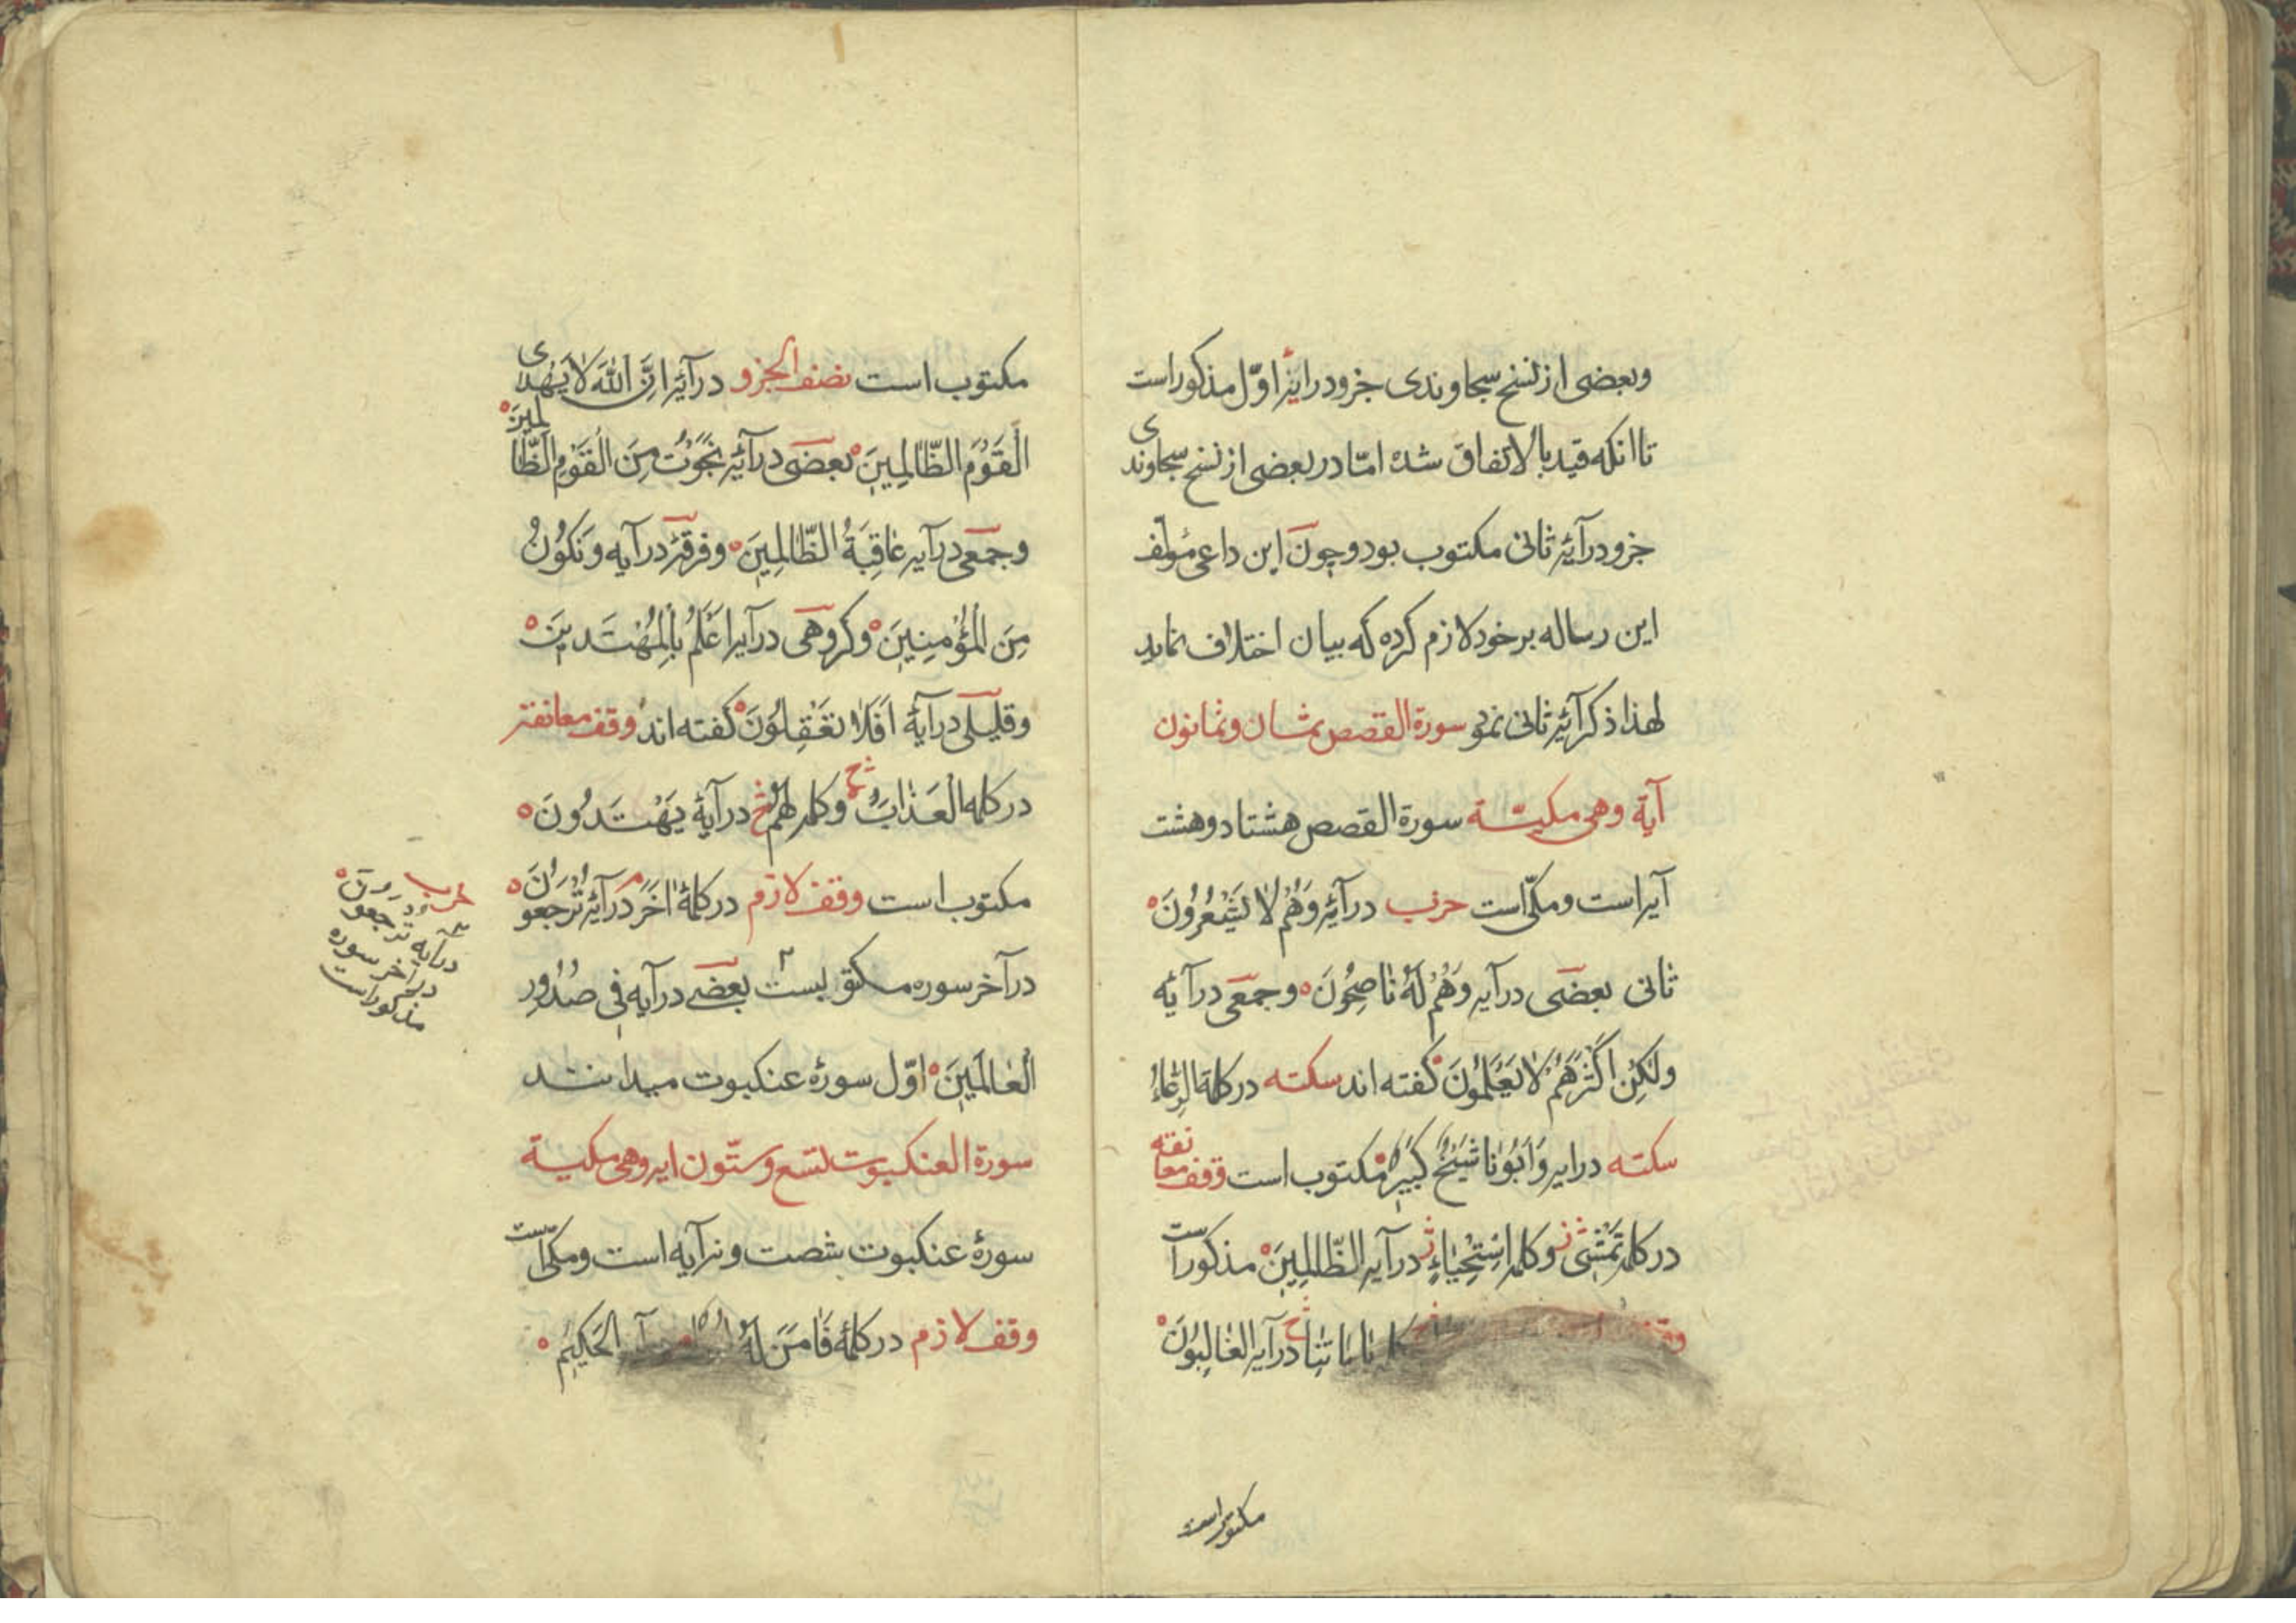 وبعضی از نسخ سجاوندی جزو درایۀ اوّل مذکور است
تا انکه قید بالاتفاق شده امّا در بعضی از نسخ سجاوندی
جزو درآیۀ ثانی مکتوب بود و چون این داعی مؤلّف
این رساله بر خود لازم کرده که بیان اختلاف نماید
لهذا ذکر آیۀ ثانی نمود سورة القصص ثمان وثمانون
آیة وهی مکیّة سورة القصص هشتاد و هشت
آیه است و مکّی است حزب درآیۀ وَهُمْ لَا يَشْعُرُونَ
ثانی بعضی درآیه وَهُمْ لَهُ نَاصِحُونَ و جمعی درآیۀ
وَلٰكِنَّ اَكْثَرَهُمْ لَا يَعْلَمُونَ گفته اند سکته در کلمۀ الرِّعَاءُ
سکته درایه وَاَبُونَا شَيْخٌ كَبِيرٌ مکتوب است وقف معانقه
در کلمۀ تَمْشِى و کلمۀ اسْتِحْيَاءٍ درآیه الظَّالِمِينَ مذکور است
بِاٰيَاتِنَا درآیه الْغَالِبُونَ
مکتوب است
مکتوب است نصف الجزو درآیۀ اِنَّ اللّٰهَ لَا يَهْدِى
الْقَوْمَ الظَّالِمِينَ بعضی درآیۀ نَجَوْتَ مِنَ الْقَوْمِ الظَّالِمِينَ
و جمعی درآیه عَاقِبَةُ الظَّالِمِينَ و فرقۀ درآیه وَنَكُونَ
مِنَ الْمُؤْمِنِينَ و گروهی درآیه اَعْلَمُ بِالْمُهْتَدِينَ
و قلیلی درآیۀ اَفَلَا تَعْقِلُونَ گفته اند وقف معانقه
در کلمه الْعَذَابَ و کلمۀ لَهُمْ درآیۀ يَهْتَدُونَ
مکتوب است وقف لازم در کلمۀ اٰخَرَ درآیۀ تُرْجَعُونَ
درآخر سوره مکتوبست بعضی درآیه فِى صُدُورِ
الْعَالَمِينَ اوّل سورۀ عنکبوت میدانند
سورة العنکبوت تسع وستّون ایه وهی مکیة
سورۀ عنکبوت شصت و نه آیه است و مکّی است
وقف لازم در کلمۀ فَاٰمَنَ لَهُ الْحَكِيمُ
حزب
درآیه ترجعون
درآخر سوره
مذکور است